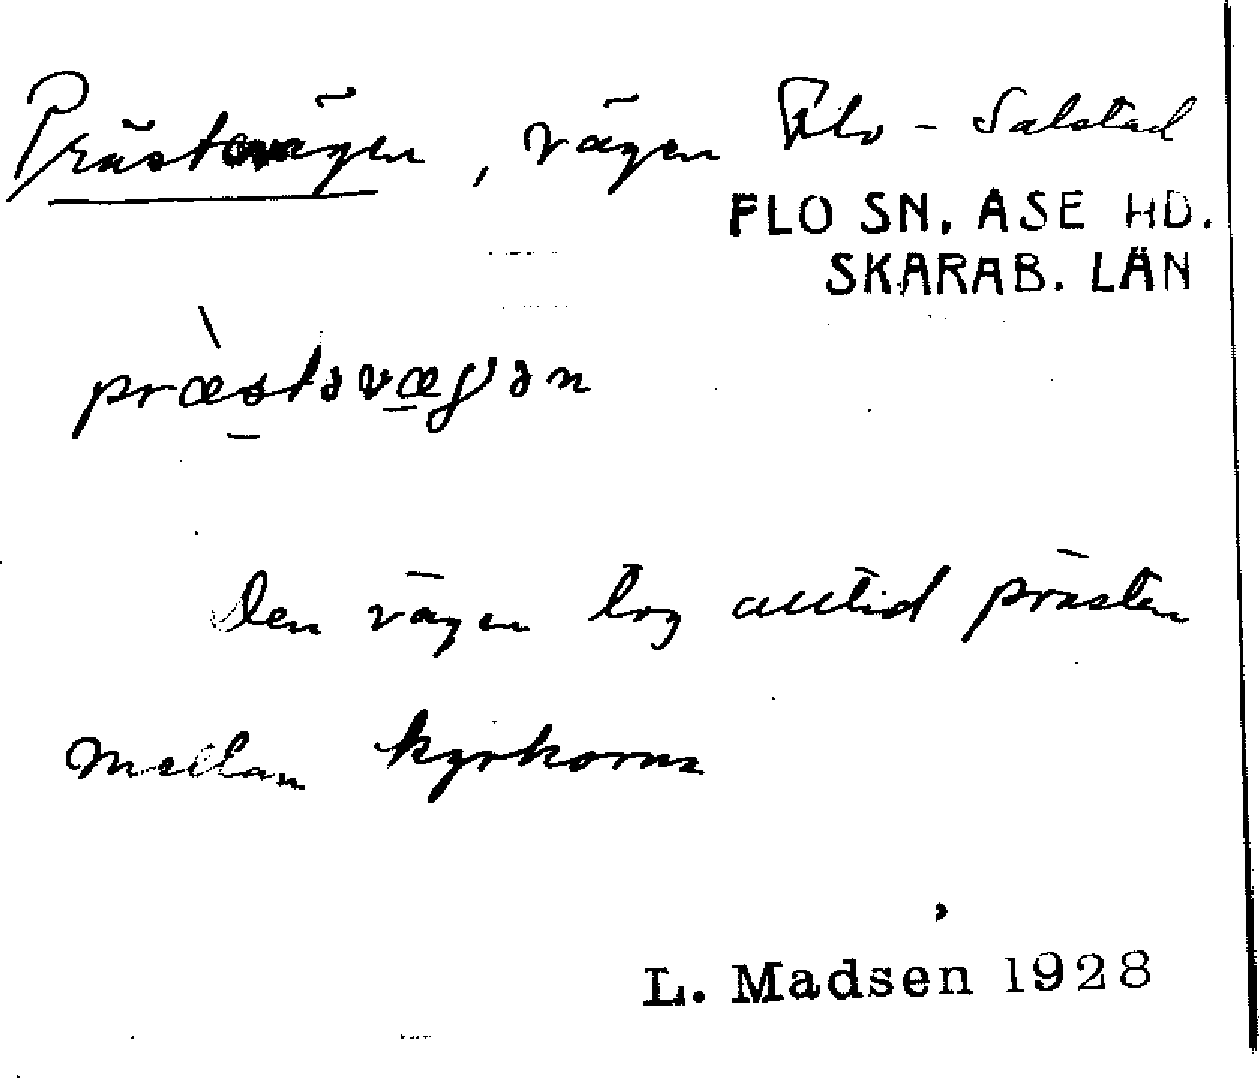 Prästavägen, vägen Flo - Salstad
FLO SN. ÅSE HD.
SKARAB. LÄN
præstəvægən
Den vägen tog alltid prästen
mellan kyrkorna
L. Madsen 1928